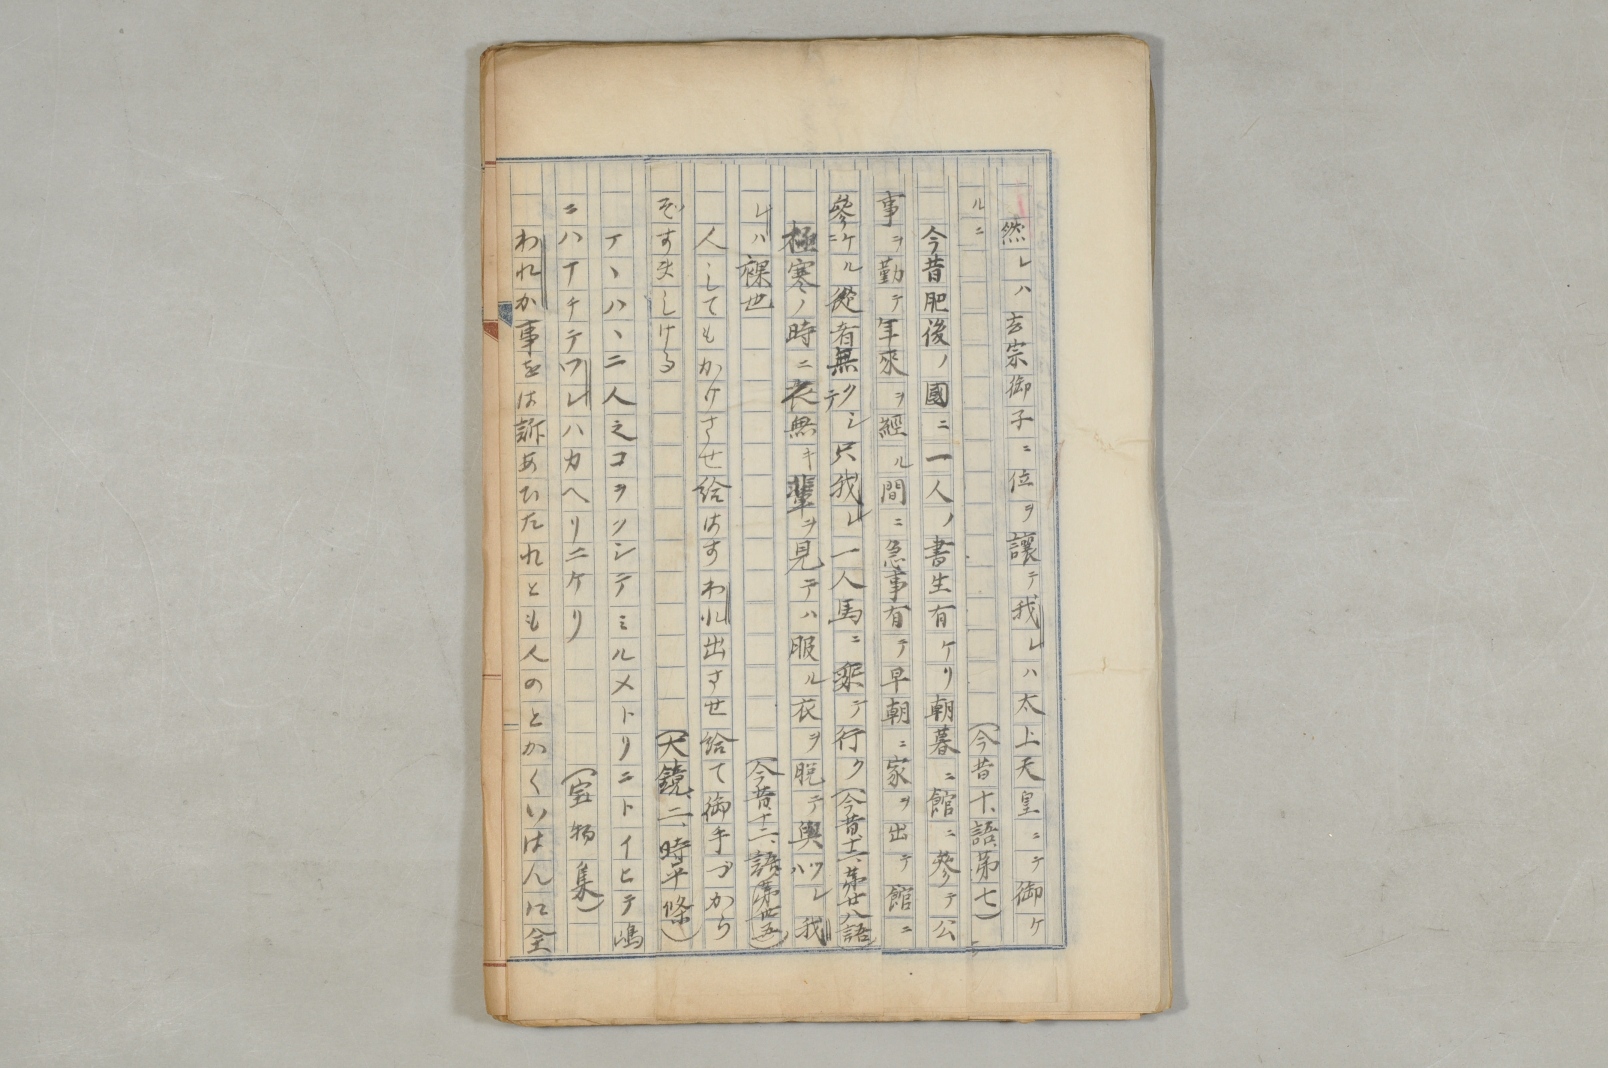 然レハ玄宗御子ニ位ヲ讓テ我レハ太上天皇ニテ御ケ
ルニ（今昔十、語第七）
今昔肥後ノ國ニ一人ノ書生有ケリ朝暮ニ館ニ參テ公
事ヲ勤テ年來ヲ經ル間ニ急事有テ早朝ニ家ヲ出テ館ニ
參ニケル從者無クテシ只我レ一人馬ニ乘テ行ク（今昔十二、第廿八語）
極寒ノ時ニ衣無キ輩ヲ見テハ服ル衣ヲ脱テ與ツレハ我
レハ裸也（今昔十二、語第卅五）
人してもかけさせ給はすわれ出させ給て御手づから
ぞすましける（大鏡二、時平條）
イヽハヽ二人之コヲソンテミルメトリニトイヒテ嶋
ニハナチテワレハカヘリニケリ（宝物集）
われか事をは訴あひたれとも人のとかくいはんに全